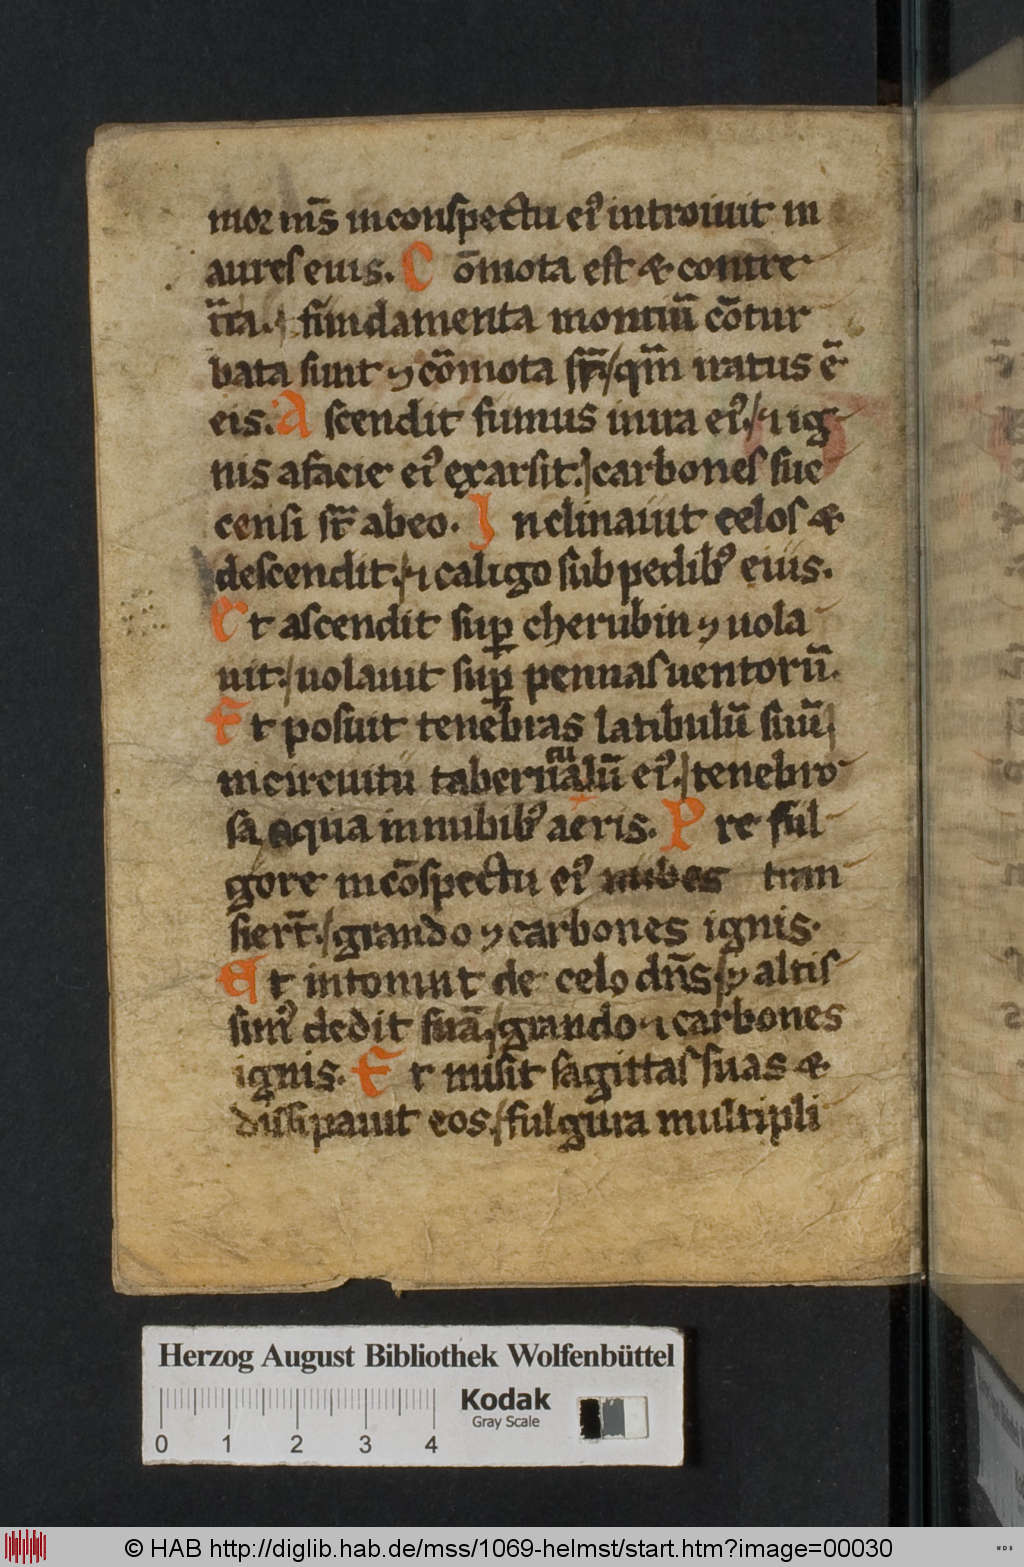 mor ms̄ in conspectu ei᾿ introiuit in
aures eius. C ōmota est & contre
īra. fundamenta montiū cōtur
bata sunt ⁊ cōmota sr̄ / qm̄ iratus ē
eis. A scendit fumus in ira ei᾿. / ⁊ ig
nis a facie ei᾿ exarsit. carbones suc
censi sr̄ ab eo. I nclinauit celos &
descendit. / ⁊ caligo sub pedib᾿ eius.
E t ascendit sup̱ cherubin ⁊ uola
uit. / uolauit sup̱ pennas uentorū.
E t posuit tenebras latibulū suū
in circuitu tabernaculū ei᾿. tenebro
sa aqua in nubib᾿ aeris. P re ful
gore in cōspectu ei᾿ nubes tran
siert̄. / grando ⁊ carbones ignis.
E t intonuit de celo dn̄s / ⁊ altis
sim᾿ dedit suā / grando ⁊ carbones
ignis. E t misit sagittas suas &
dissipauit eos. / fulgura multipli
Herzog August Bibliothek Wolfenbüttel
Kodak
Gray Scale
0 1 2 3 4
© HAB http://diglib.hab.de/mss/1069-helmst/start.htm?image=00030